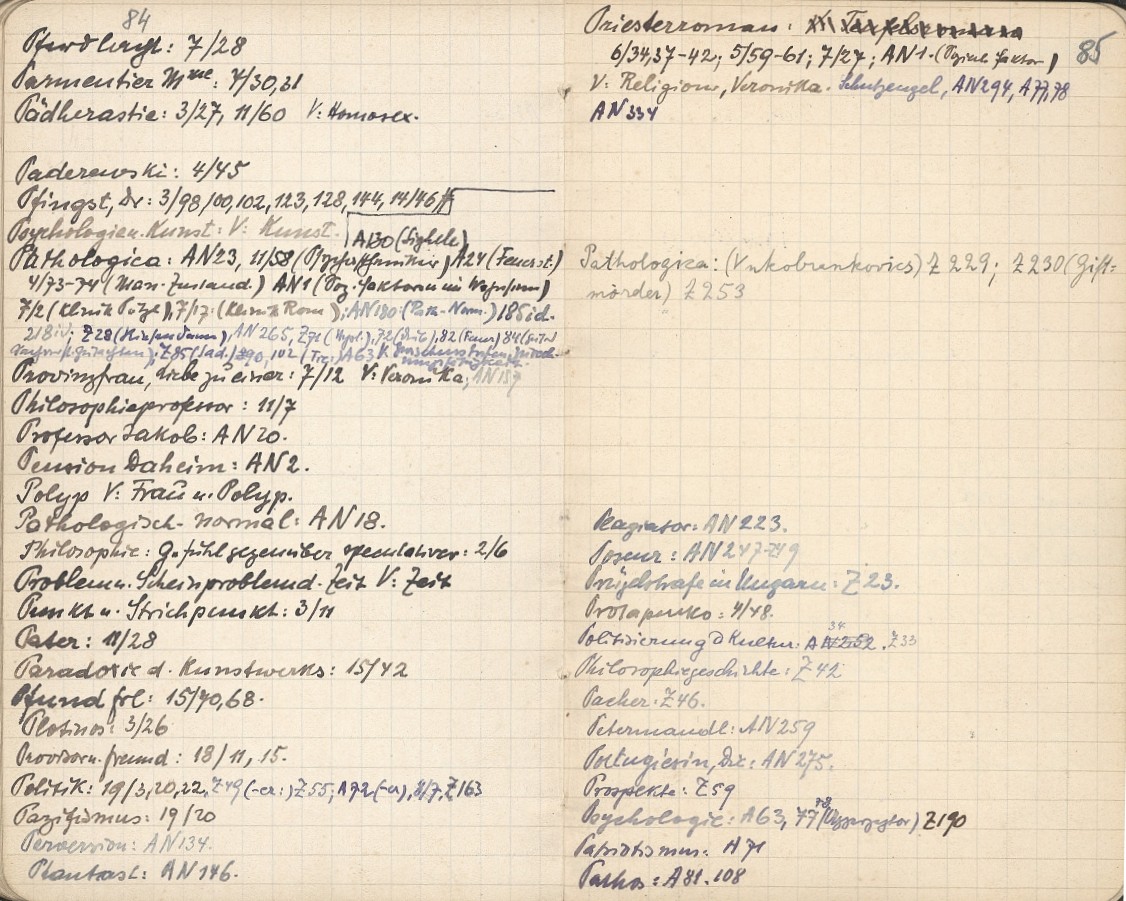 84
Parmentier Mme: 7/30,31
Pädherastie: 3/27, 11/60 V: Homosex.
Paderewski: 4/45
Pfingst, Dr: 3/98,100,102,123,128,144,14/46
Psychologie u. Kunst: V: Kunst.
A130 (Sighele)
Pathologica: AN23, 11/58 A24 (Feuerst.)
4/73-74 (Man. Zustand.) AN1 (Soz. Faktoren im Wahnsinn)
7/2 (Klinik 7/17. (Klinik Rom); AN180. (Path.-Norm.) 185 id.
218 id; Z28 AN265, Z71
Z85 (Sad.) 102 A63
Provinzfrau, Liebe zu einer: 7/12 V: Veronika, AN157
Philosophieprofessor: 11/7
Professor Jakob: AN20.
Pension Daheim: AN2.
Polyp V: Frau u. Polyp.
Pathologisch-normal: AN18.
Philosophie: Gefühl gegenüber spekulativer: 2/6
Problem u. Scheinproblem d. Zeit V: Zeit
Punkt u. Strichpunkt: 3/11
Pater: 11/28
Paradoxie d. Kunstwerks: 15/42
Pfund frl: 15/70,68.
Plotinos: 3/26
Provisor u. fremd: 18/11, 15.
Politik: 19/3,20,22, Z49 (-er:) Z55, A72 (-er), 8/7, Z163
Pazifismus: 19/20
Perversion: AN134.
Phantast: AN146.
85
Priesterroman:
6/34,37-42; 5/59-61; 7/27; AN1. (Soziale Faktor)
V: Religion, Veronika. Schutzengel, AN294, A77,78
AN334
Pathologica: (Vukobrankovics) Z229; Z230 (Gift=
mörder) Z253
Plagiator: AN223.
Poseur: AN247-249
Prügelstrafe in Ungarn: Z23.
Protapunko: 4/48.
Politisierung d Kultur: AN252 34. Z33
Philosophiegeschichte: Z42
Pacher: Z46.
Petermandl: AN259
Portugiesin, Die: AN275.
Prospekte: Z59
Psychologie: A63, 77 78 Z190
Patriotismus: A71
Pathos: A81.108